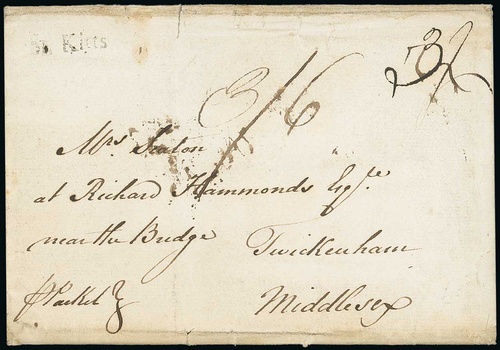 St. Kitts
3/6
Mrs. Seaton
at Richard Hammonds Esqr.
near the Bridge Twickenham
p Packet Middlesex